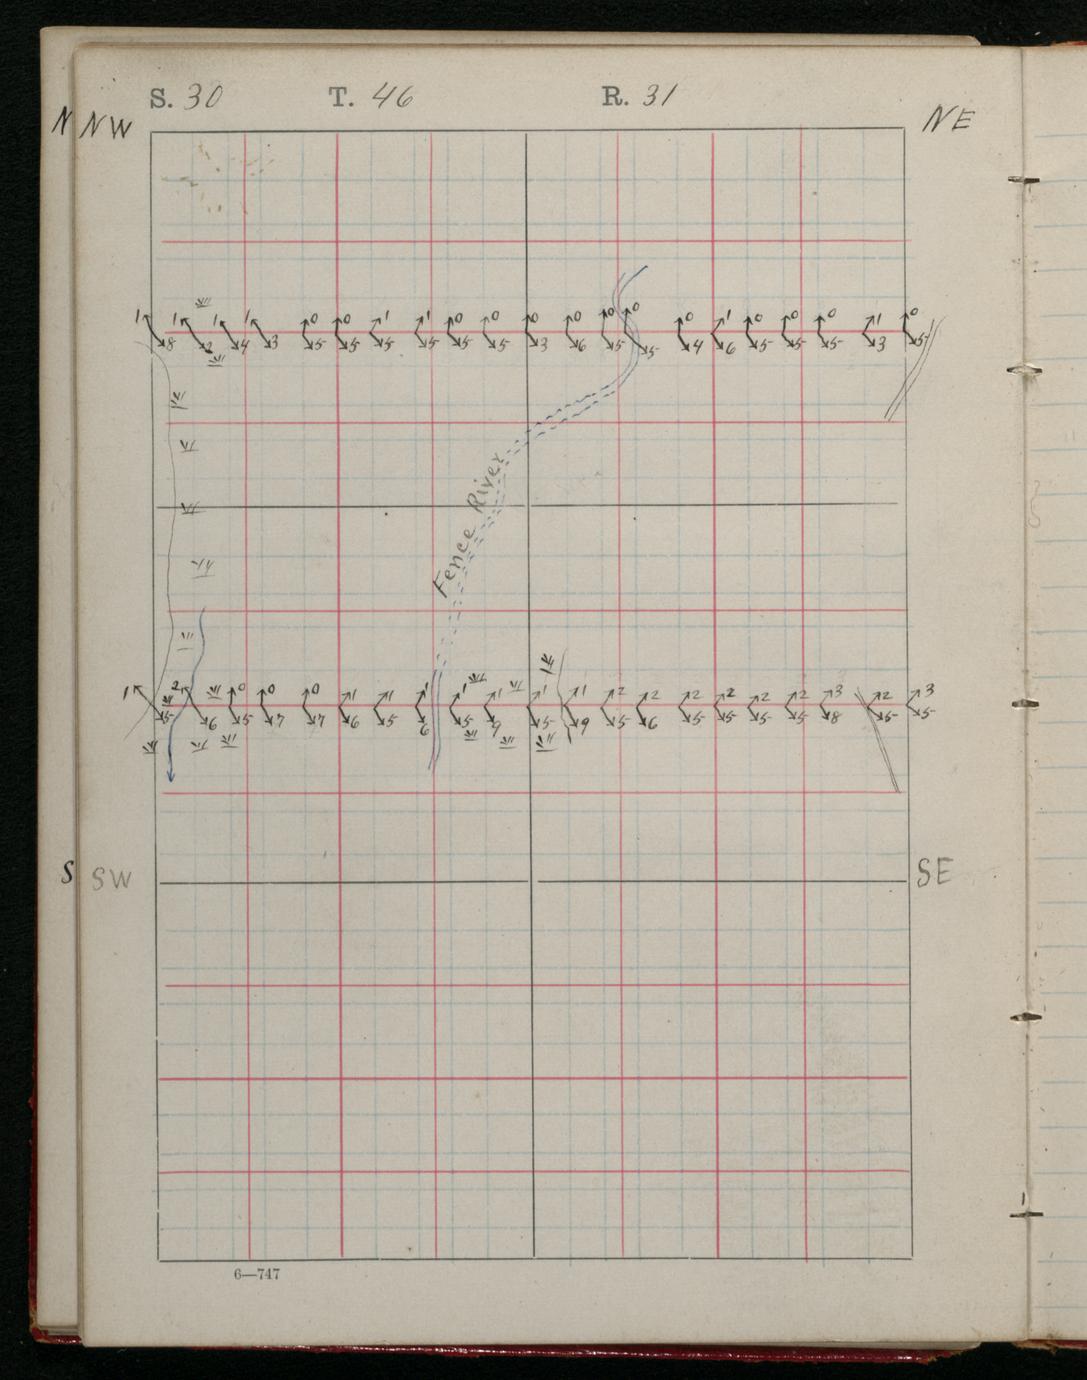 S. 30 T. 46 R. 31
N NW NE
1 1 1 1 0 0 1 1 0 0 0 0 0 0 0 1 0 0 0 1 0
8 2 4 3 5 5 5 5 5 5 3 6 5 5 4 6 5 5 5 3 5
Fence River
1 2 0 0 0 1 1 1 1 1 1 1 2 2 2 2 2 2 3 2 3
5 6 5 7 7 6 5 6 5 9 5 9 5 6 5 5 5 5 8 5 5
S SW SE
6—747